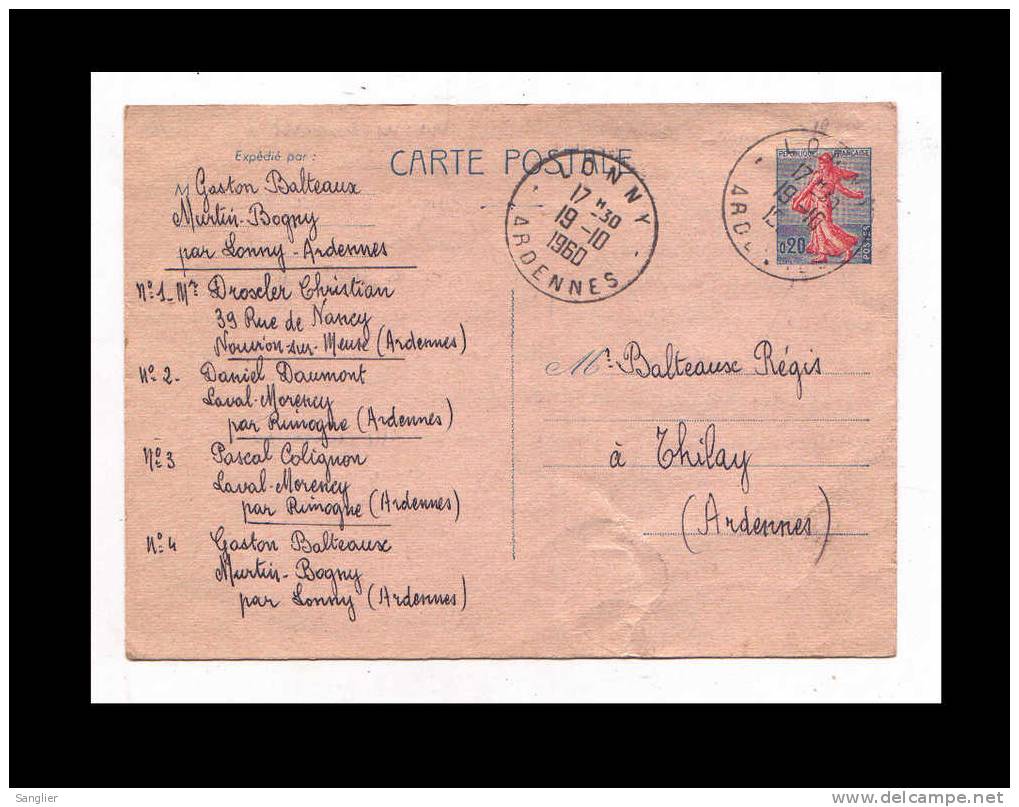 Expédié par :
CARTE POSTALE
Gaston Balteaux
Murtin-Bogny
par Lonny - Ardennes
LONNY
17 H 30
19-10
1960
ARDENNES
RÉPUBLIQUE FRANÇAISE
0,20
POSTES
N° 1_ Mr Droscler Christian
39 Rue de Nancy
Nouvion-sur-Meuse (Ardennes)
N° 2- Daniel Daumont
Laval-Morency
par Rimogne (Ardennes)
N° 3 Pascal Colignon
Laval-Morency
par Rimogne (Ardennes)
N° 4 Gaston Balteaux
Murtin-Bogny
par Lonny (Ardennes)
Mr Balteaux Régis
à Thilay
(Ardennes)
Sanglier
www.delcampe.net